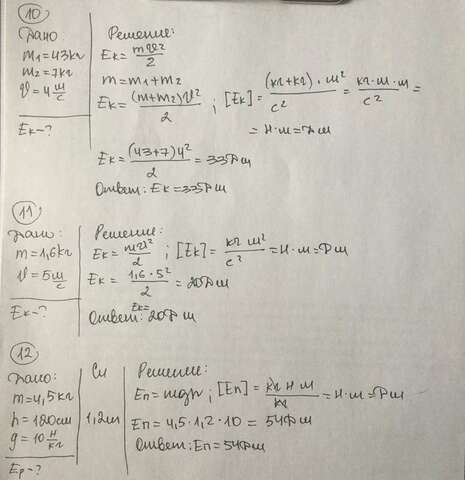 10
Дано
m₁=43кг
m₂=7кг
v=4 м/с
Eк-?
Решение:
Eк= mv²/2
m=m₁+m₂
Eк= (m+m₂)v²/2 ; [Eк]= (кг+кг)·м²/с² = кг·м·м/с² =
= Н·м=Дж
Eк= (43+7)4²/2 = 335Дж
Ответ: Eк=335Дж
11
Дано:
m=1,6кг
v=5 м/с
Eк-?
Решение:
Eк= mv²/2 ; [Eк]= кг м²/с² =Н·м=Дж
Eк= 1,6·5²/2 = 20Дж
Eк=
Ответ: 20Дж
12
Дано:
m=4,5кг
h=120см
g=10 Н/кг
Ep-?
Си
1,2м
Решение:
Eп=mgh; [Eп]= кг Н м/кг =Н·м=Дж
Eп=4,5·1,2·10=54Дж
Ответ: Eп=54Дж